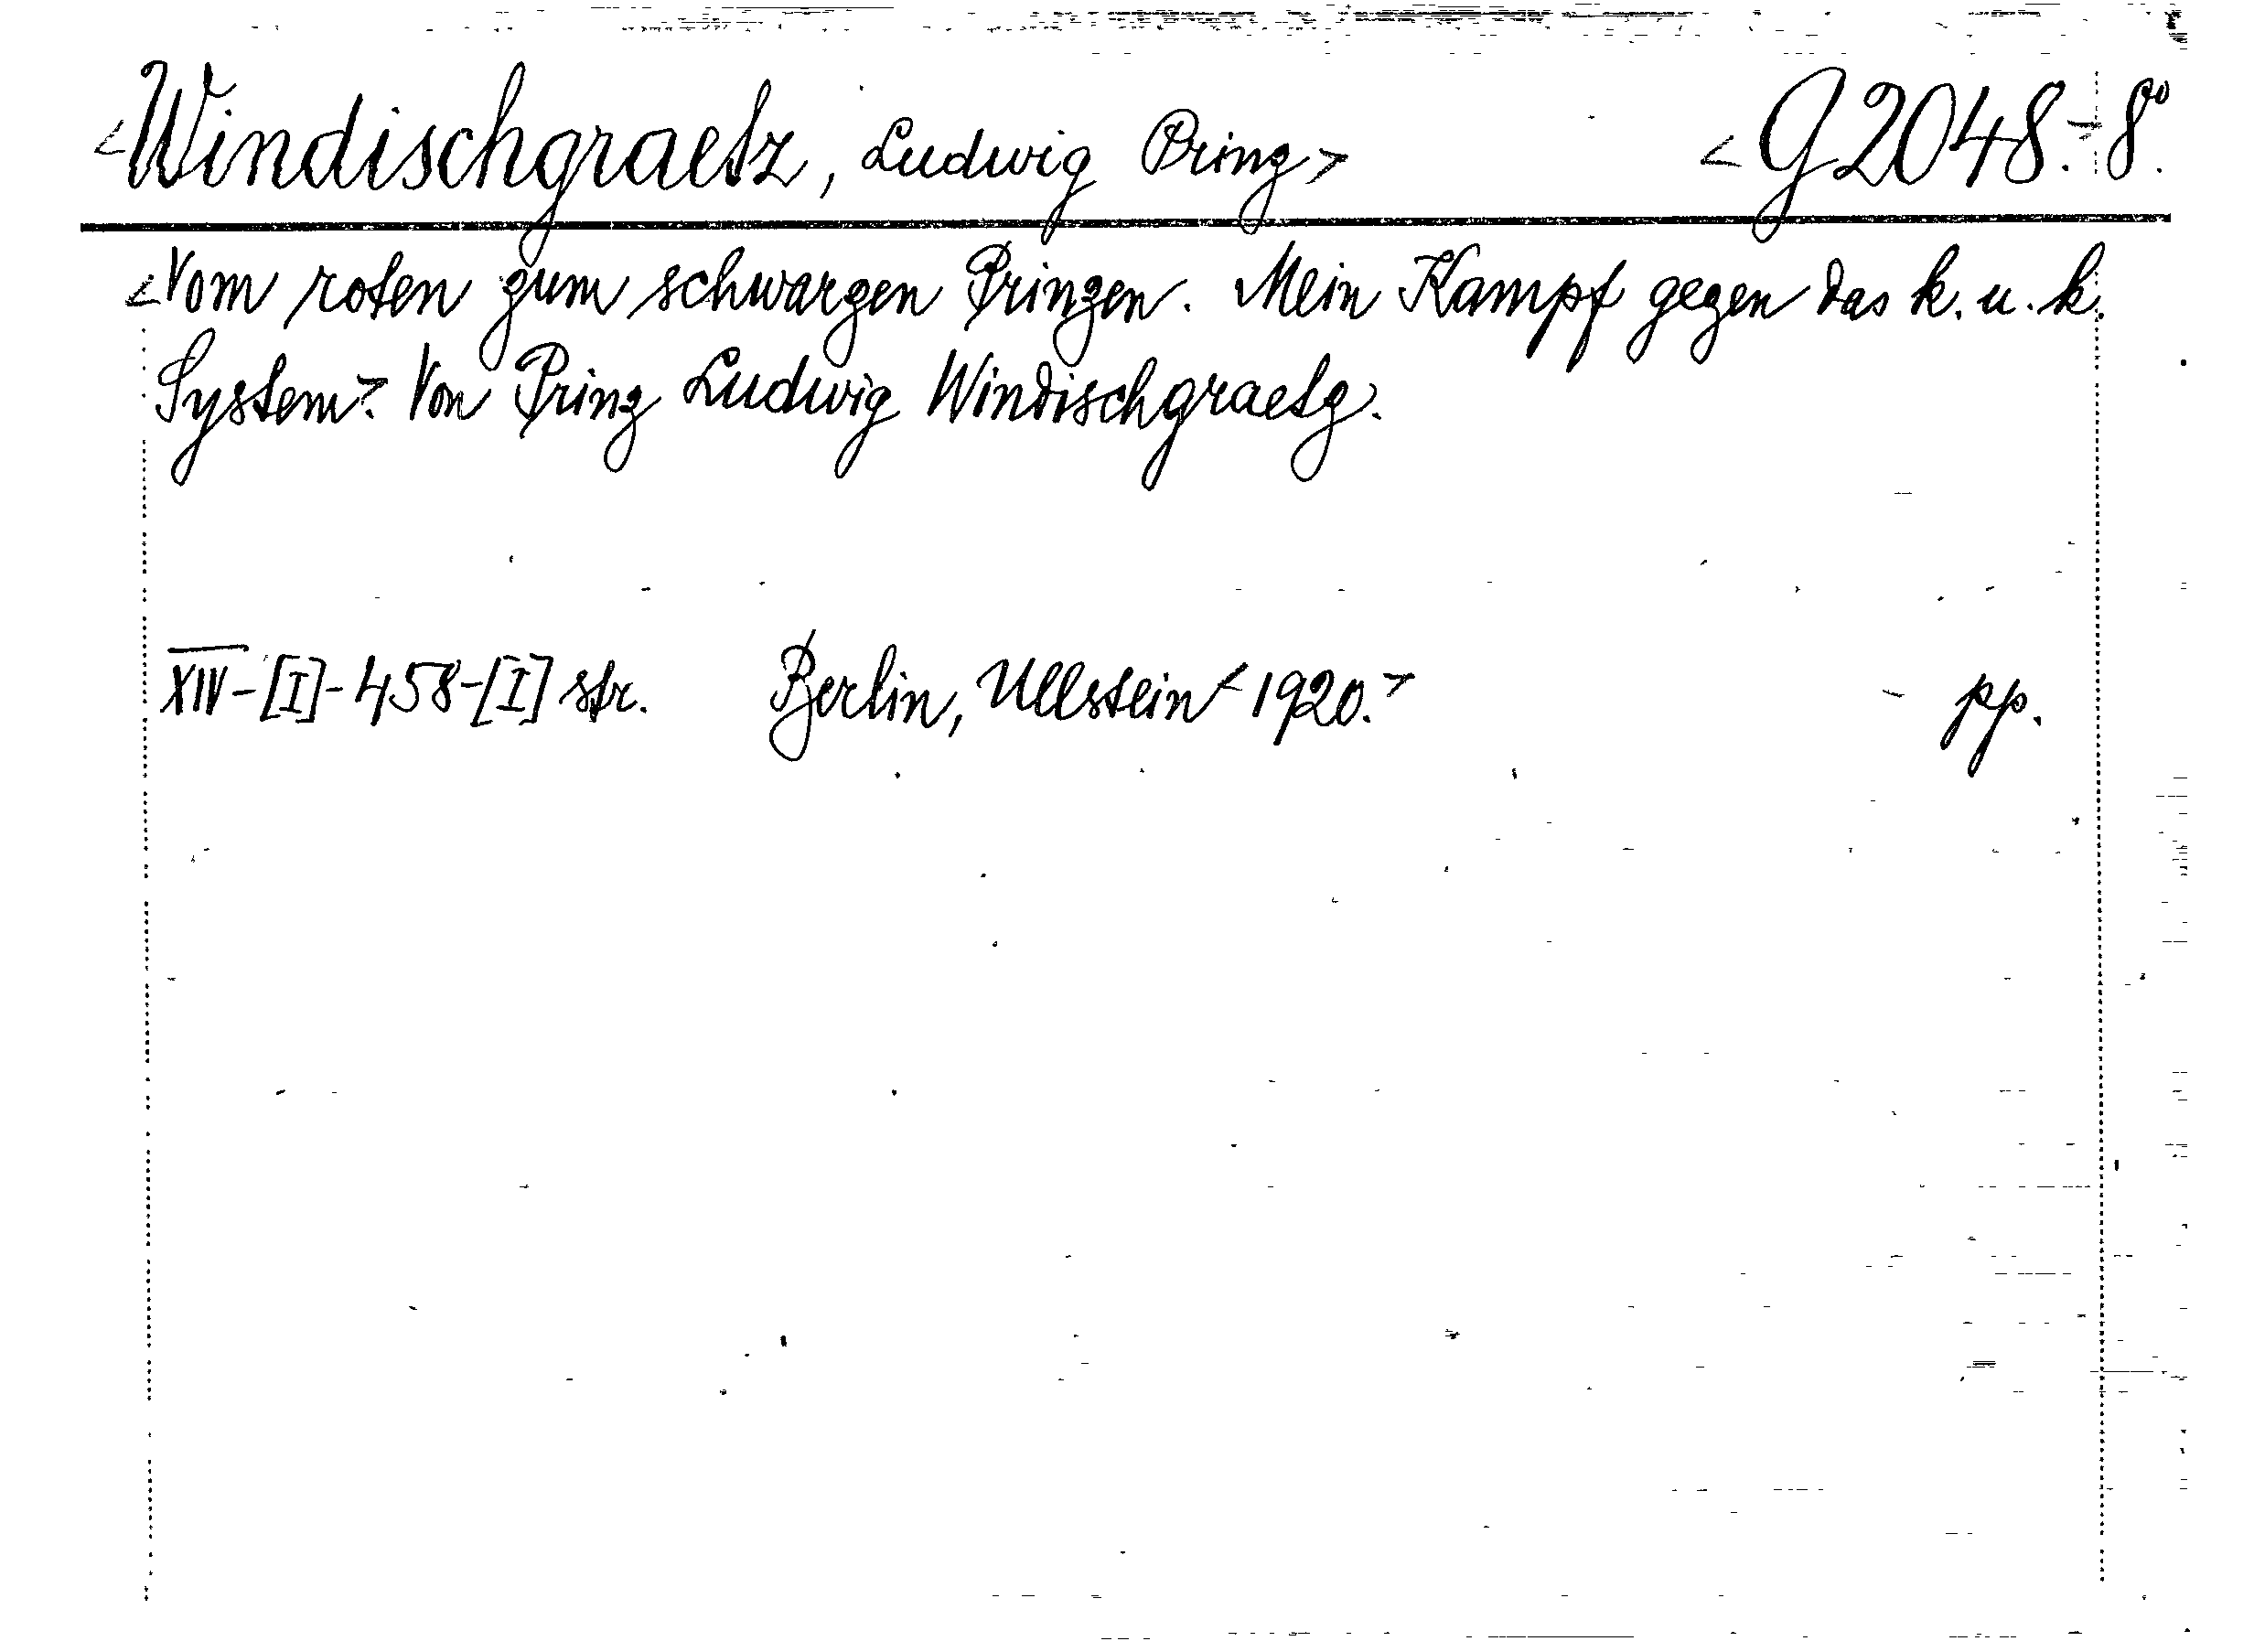 <Windischgraetz, Ludwig Prinz> <G 2048.-8º.
<Vom roten zum schwarzen Prinzen. Mein Kampf gegen das k. u. k.
System>. Von Prinz Ludwig Windischgraetz.
XIV-[I]-458-[I] str. Berlin, Ullstein <1920.> - pp.